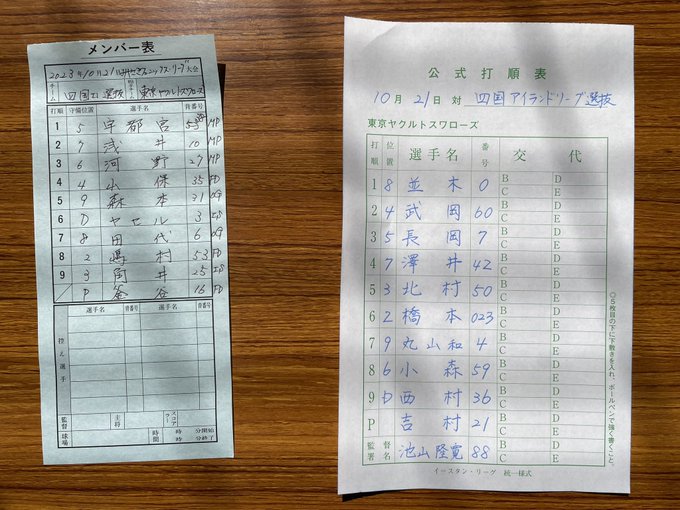 メンバー表
2023年10月21日みやざきフェニックス・リーグ大会
チーム 四国IL選抜 相手チーム 東京ヤクルトスワローズ
打順 守備位置 選手名 背番号
1 5 宇都宮 55 MP
2 7 浅井 10 MP
3 6 河野 27 MP
4 4 小保 35 FD
5 9 森本 31 OG
6 D ヤセル 3
7 8 田代 6 OG
8 2 嶋村 53 FD
9 3 角井 25
P 釜谷 16 FD
選手名 背番号 選手名 背番号
控え選手
監督 主将 スコアラー
球場 時間 時 分開始
時 分終了
公式打順表
10月21日 対 四国アイランドリーグ選抜
東京ヤクルトスワローズ
打順 位置 選手名 番号 交代
1 8 並木 0 B D
C E
2 4 武岡 60 B D
C E
3 5 長岡 7 B D
C E
4 7 澤井 42 B D
C E
5 3 北村 50 B D
C E
6 2 橋本 023 B D
C E
7 9 丸山和 4 B D
C E
8 6 小森 59 B D
C E
9 D 西村 36 B D
C E
P 吉村 21 B D
C E
監督署名 池山隆寛 88 B D
C E
イースタン・リーグ 統一様式
◎5枚目の下に下敷きを入れ、ボールペンで強く書くこと。